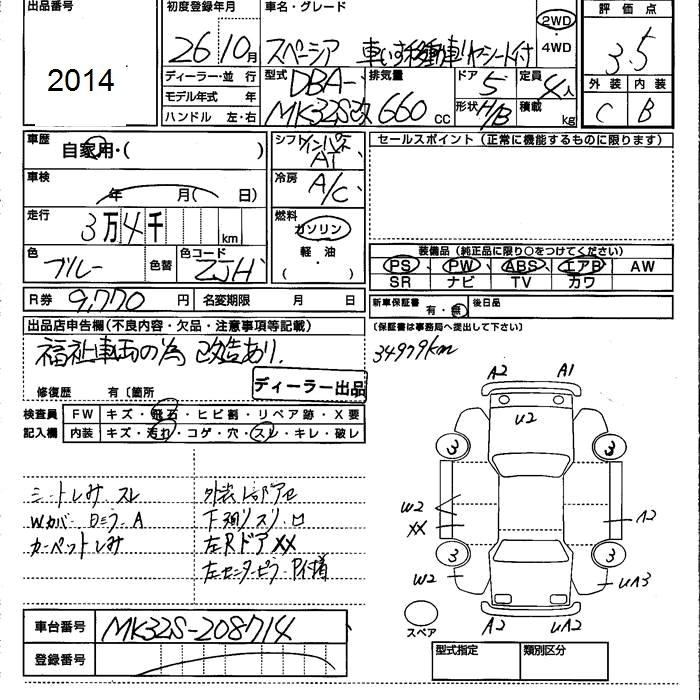 出品番号
2014
初度登録年月
26 10月
車名・グレード
スペーシア 車いす移動車リヤシート付
2WD
・4WD
評価点
3.5
外装 内装
C B
ディーラー・並行
モデル年式 年
ハンドル 左・右
型式 DBA-
MK32S改
排気量
660 cc
ドア 5
形状 H/B
定員 4人
積載 kg
車歴
自家用・( )
車検
年 月( 日)
走行
3万4千 km
色 ブルー 色替
色コード ZJH
シフト インパネ
AT
冷房
A/C
燃料
ガソリン
軽・油
( ・ )
セールスポイント(正常に機能するものに限ります)
装備品(純正品に限り○をつけてください)
PS PW ABS エアB AW
SR ナビ TV カワ
R券 9,770 円 名変期限 月 日
新車保証書 有・無 後日品
(保証書は事務局へ提出して下さい)
出品店申告欄(不良内容・欠品・注意事項等記載)
福祉車両の為 改造あり.
34979km
修復歴 有〔箇所
ディーラー出品
検査員 FW キズ・飛石・ヒビ割・リペア跡・X要
記入欄 内装 キズ・汚れ・コゲ・穴・スレ・キレ・破レ
シートしみ スレ
Wカバー
カーペットしみ
下廻りスリ・
左Rドア XX
左センターピラー P付着
A2 A1
u2
3 3
w2
XX
A2
3 3
w2 uA3
スペア
A2 uA2
車台番号 MK32S-208714
登録番号
型式指定 類別区分